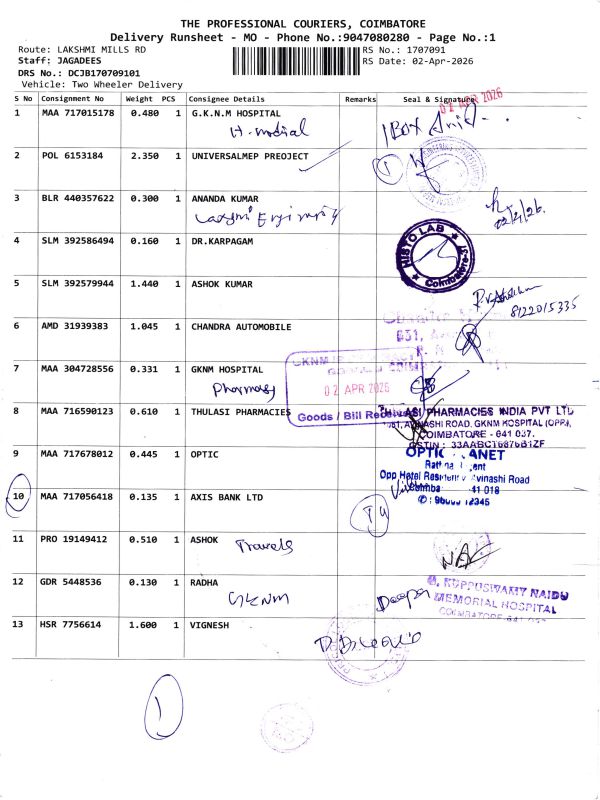 THE PROFESSIONAL COURIERS, COIMBATORE
Delivery Runsheet - MO - Phone No.:9047080280 - Page No.:1
Route: LAKSHMI MILLS RD
RS No.: 1707091
Staff: JAGADEES
RS Date: 02-Apr-2026
DRS No.: DCJB170709101
Vehicle: Two Wheeler Delivery
S No Consignment No Weight PCS Consignee Details Remarks Seal & Signature
APR 2026
1 MAA 717015178 0.480 1 G.K.N.M HOSPITAL
1 Box
2 POL 6153184 2.350 1 UNIVERSALMEP PREOJECT
3 BLR 440357622 0.300 1 ANANDA KUMAR
02/4/26.
4 SLM 392586494 0.160 1 DR.KARPAGAM
HISTO LAB
Coimbatore
5 SLM 392579944 1.440 1 ASHOK KUMAR
8122015335
6 AMD 31939383 1.045 1 CHANDRA AUTOMOBILE
7 MAA 304728556 0.331 1 GKNM HOSPITAL
Pharmasy
GKNM
02 APR 2026
Goods / Bill Received
8 MAA 716590123 0.610 1 THULASI PHARMACIES
PHARMACIES INDIA PVT LTD
AVINASHI ROAD, GKNM HOSPITAL (OPP),
COIMBATORE - 641 037.
9 MAA 717678012 0.445 1 OPTIC
OPTIC ANET
Opp Hotel Residency Avinashi Road
10 MAA 717056418 0.135 1 AXIS BANK LTD
11 PRO 19149412 0.510 1 ASHOK
Travels
12 GDR 5448536 0.130 1 RADHA
GKNM
Deepa
G. KUPPUSWAMY NAIDU
MEMORIAL HOSPITAL
13 HSR 7756614 1.600 1 VIGNESH
1